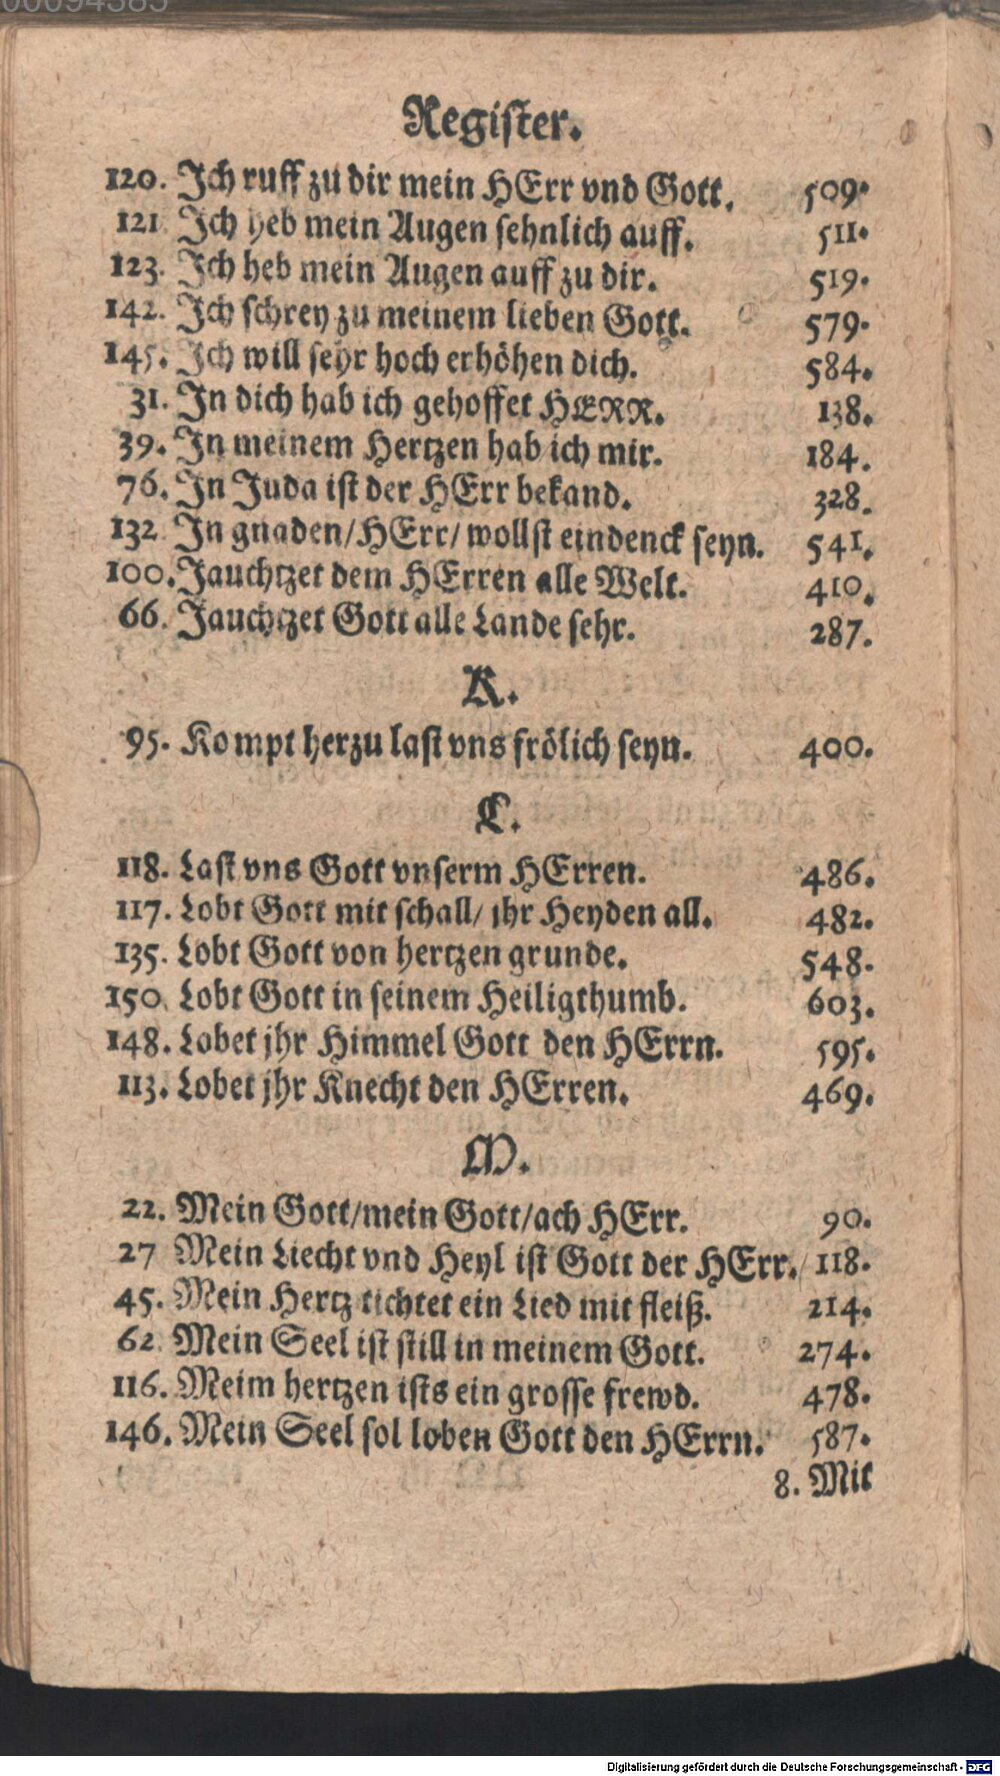 00094385
Register.
120. Ich ruff zu dir mein HErr vnd Gott. 509.
121 Ich heb mein Augen sehnlich auff. 511.
123. Ich heb mein Augen auff zu dir. 519.
142. Ich schrey zu meinem lieben Gott. 579.
145. Ich will sehr hoch erhöhen dich. 584.
31. In dich hab ich gehoffet HERR. 138.
39. In meinem Hertzen hab ich mir. 184.
76. In Juda ist der HErr bekand. 328.
132 In gnaden/HErr/ wollst eindenck seyn. 541.
100. Jauchtzet dem HErren alle Welt. 410.
66. Jauchtzet Gott alle Lande sehr. 287.
K.
95. Kompt herzu last vns frölich seyn. 400.
L.
118. Last vns Gott vnserm HErren. 486.
117. Lobt Gott mit schall/ jhr Heyden all. 482.
135. Lobt Gott von hertzen grunde. 548.
150. Lobt Gott in seinem Heiligthumb. 603.
148. Lobet jhr Himmel Gott den HErrn. 595.
113. Lobet jhr Knecht den HErren. 469.
M.
22. Mein Gott/mein Gott/ach HErr. 90.
27 Mein Liecht vnd Heyl ist Gott der HErr. 118.
45. Mein Hertz tichtet ein Lied mit fleiß. 214.
62. Mein Seel ist still in meinem Gott. 274.
116. Meim hertzen ists ein grosse frewd. 478.
146. Mein Seel sol loben Gott den HErrn. 587.
8. Mit
Digitalisierung gefördert durch die Deutsche Forschungsgemeinschaft - DFG